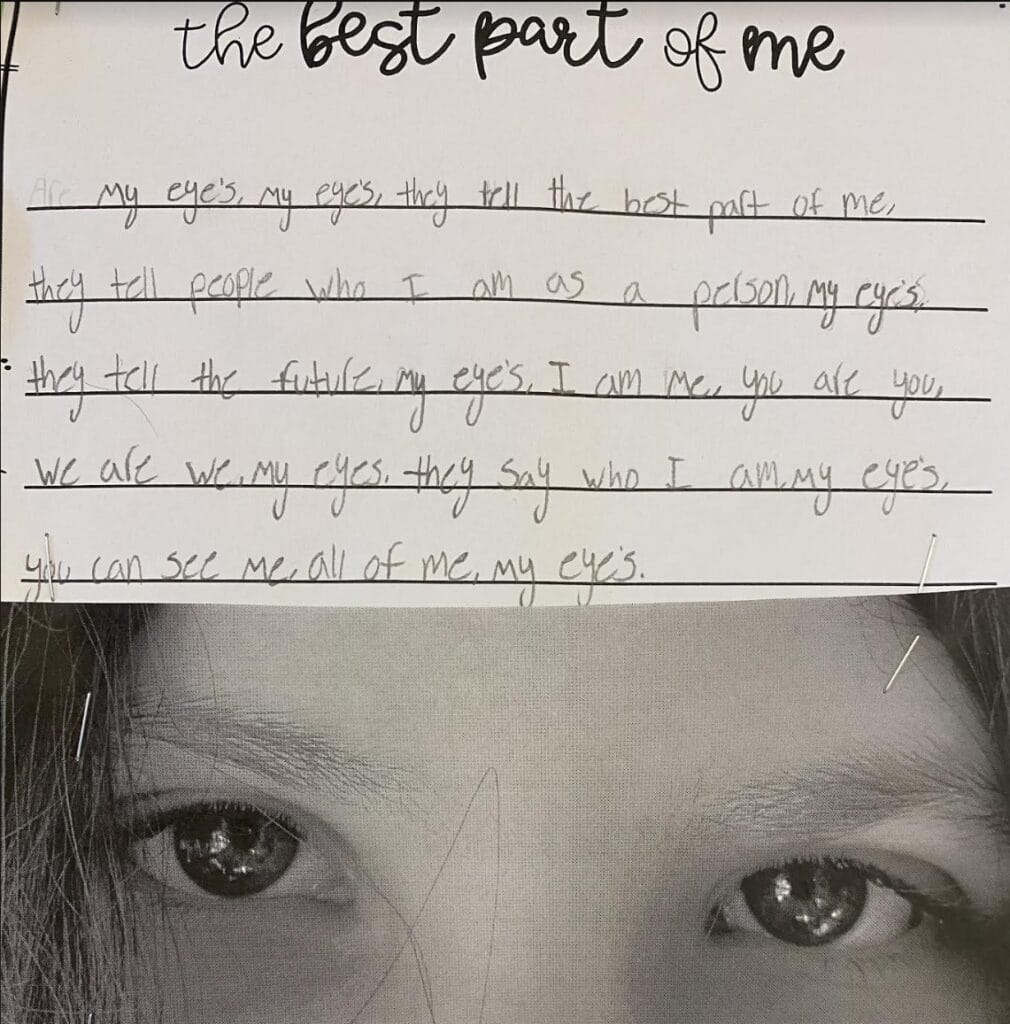 the best part of me
My eye's, my eye's, they tell the best part of me,
they tell people who I am as a person, my eye's,
they tell the future, my eye's, I am me, you are you,
we are we, my eyes. they say who I am, my eye's,
you can see me, all of me, my eye's.